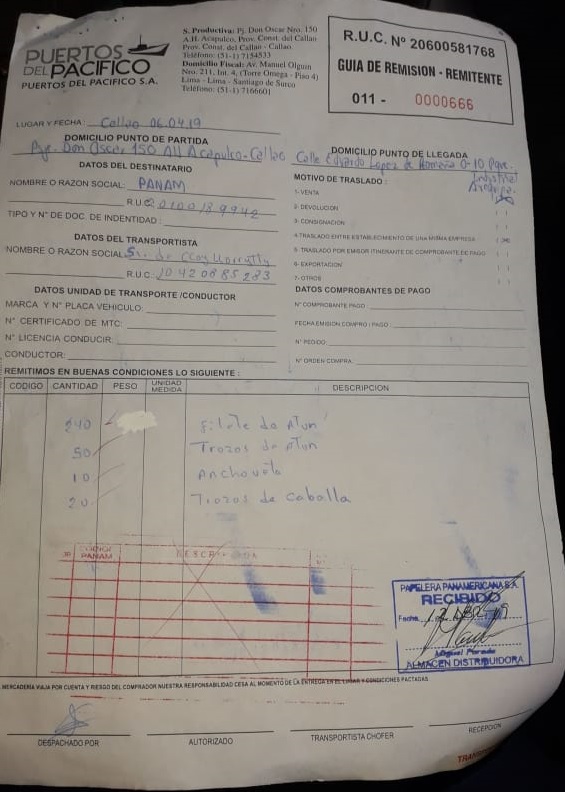 PUERTOS
DEL PACIFICO
PUERTOS DEL PACIFICO S.A.
S. Productiva: Pj. Don Oscar Nro. 150
A.H. Acapulco, Prov. Const. del Callao
Prov. Const. del Callao - Callao.
Teléfono: (51-1) 7154533
Domicilio Fiscal: Av. Manuel Olguin
Nro. 211, Int. 4, (Torre Omega - Piso 4)
Lima - Lima - Santiago de Surco
Teléfono: (51-1) 7166601
R.U.C. Nº 20600581768
GUIA DE REMISION - REMITENTE
011 - 0000666
LUGAR Y FECHA: Callao 06.04.19
DOMICILIO PUNTO DE PARTIDA
Pje. Don Oscar 150 AH Acapulco - Callao
DOMICILIO PUNTO DE LLEGADA
Calle Eduardo Lopez de Romaña 0-10 Parque
Industrial
DATOS DEL DESTINATARIO
NOMBRE O RAZON SOCIAL: PANAM
R.U.C. 20100189942
TIPO Y N° DE DOC. DE INDENTIDAD:
MOTIVO DE TRASLADO:
1- VENTA
2- DEVOLUCION ( )
3- CONSIGNACION ( )
4-TRASLADO ENTRE ESTABLECIMIENTO DE UNA MISMA EMPRESA
5- TRASLADO POR EMISOR ITINERANTE DE COMPROBANTE DE PAGO ( )
6- EXPORTACION ( )
7- OTROS ( )
DATOS DEL TRANSPORTISTA
NOMBRE O RAZON SOCIAL:
R.U.C. 10420885283
DATOS UNIDAD DE TRANSPORTE /CONDUCTOR
MARCA Y N° PLACA VEHICULO:
N° CERTIFICADO DE MTC:
N° LICENCIA CONDUCIR:
CONDUCTOR:
DATOS COMPROBANTES DE PAGO
N° COMPROBANTE PAGO:
FECHA EMISION COMPRO / PAGO:
N° PEDIDO:
N° ORDEN COMPRA:
REMITIMOS EN BUENAS CONDICIONES LO SIGUIENTE :
CODIGO CANTIDAD PESO UNIDAD MEDIDA DESCRIPCION
240 Filete de Atun
50 Trozos de Atun
10 Anchoveta
20 Trozos de caballa
PANAM
PAPELERA PANAMERICANA S.A.
RECIBIDO
Fecha
ALMACEN DISTRIBUIDORA
MERCADERIA VIAJA POR CUENTA Y RIESGO DEL COMPRADOR NUESTRA RESPONSABILIDAD CESA AL MOMENTO DE LA ENTREGA EN EL LUGAR Y CONDICIONES PACTADAS.
DESPACHADO POR
AUTORIZADO
TRANSPORTISTA CHOFER
RECEPCION